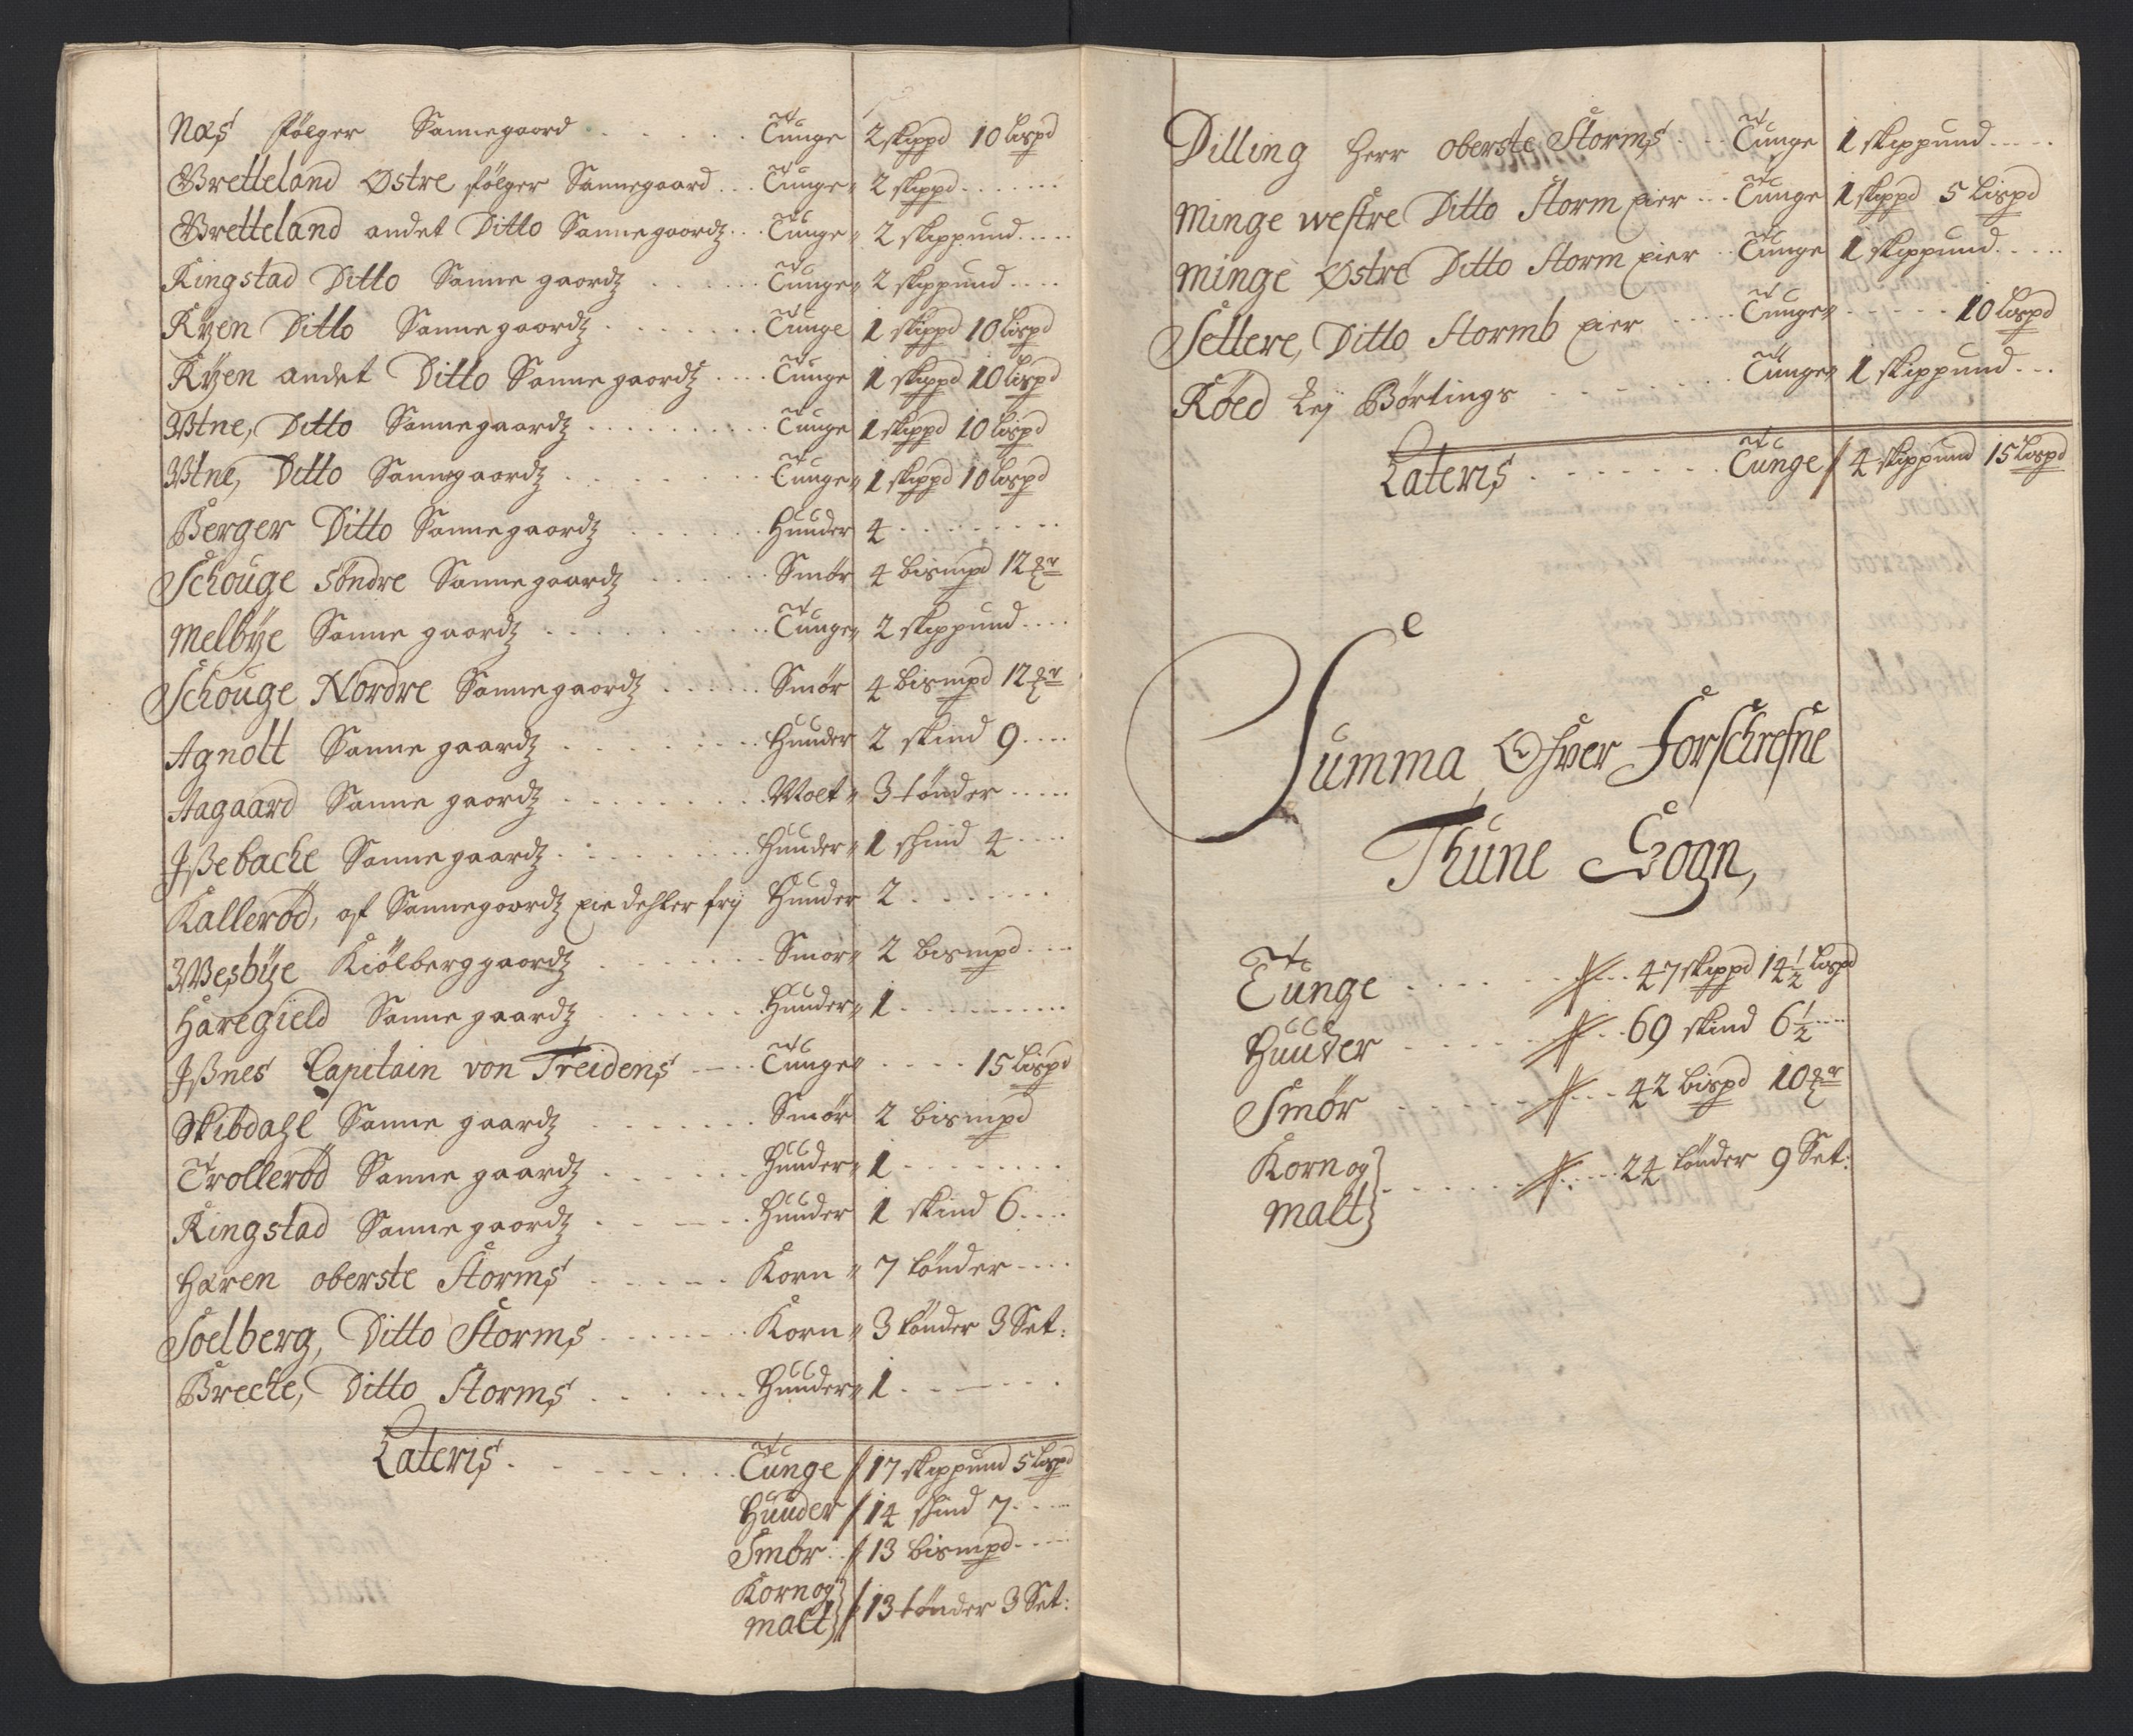 Næs følger Sannegaard . . . . . Tunge 2 skippd 10 Lispd
Bretteland Østre følger Sannegaard . . . Tunge 2 skippd . . . .
Bretteland andet Ditto Sannegaardz . . . Tunge 2 skippund . . . .
Ringstad Ditto Sannegaardz . . . . . Tunge 2 skippund . . . .
Ryen Ditto Sannegaardz . . . . . Tunge 1 skippd 10 Lispd
Ryen andet Ditto Sannegaardz . . . . Tunge 1 skippd 10 Lispd
Wtne, Ditto Sannegaardz . . . . . Tunge 1 skippd 10 Lispd
Wtne, Ditto Sannegaardz . . . . . Tunge 1 skippd 10 Lispd
Berger Ditto Sannegaardz . . . . . Huuder 4 . . . .
Schouge Söndre Sannegaardz . . . . . Smør 4 bismpd 12 ℔r
Melbÿe Sannegaardz . . . . . Tunge 2 skippund . . . .
Schouge Nordre Sannegaardz . . . . . Smør 4 bismpd 12 ℔r
Agnolt Sannegaardz . . . . . Huuder 2 skind 9 . . . .
Aagaard Sannegaardz . . . . . Molt 3 tönder . . . .
Jßebache Sannegaardz . . . . . Huuder 1 skind 4 . . . .
Kalleröd, af Sannegaardz eie dehler frij Huuder 2 . . . .
Wesbÿe Kiölberggaardz . . . . . Smør 2 bismpd . . . .
Haregield Sannegaardz . . . . . Huuder 1 . . . .
Jßnes Capitain von Treidens . . . . Tunge . . . . 15 Lispd
Skibdahl Sannegaardz . . . . . Smør 2 bismpd
Trolleröd Sannegaardz . . . . . Huuder 1 . . . .
Ringstad Sannegaardz . . . . . Huuder 1 skind 6 . . . .
Haren oberste Storms . . . . . Korn 7 tönder . . . .
Soelberg, Ditto Storms . . . . . Korn 3 tönder 3 Set:
Breche, Ditto Storms . . . . . Huuder 1 . . . .
Lateris . . . . . Tunge / 17 skippund 5 Lispd
Huuder / 14 skind 7 . . . .
Smør / 13 bismpd . . . .
Korn og
malt / 13 tönder 3 Set:
Dilling Herr oberste Storms . . . Tunge 1 skippund . . . .
Minge westre Ditto Storm eier . . . Tunge 1 skippd 5 Lispd
Minge Østre Ditto Storm eier . . Tunge 1 skippund . . . .
Settere, Ditto Stormb eier . . . . Tunge . . . . 10 Lispd
Röed Lej Börtings . . . . . Tunge 1 skippund . . .
Lateris . . . . . Tunge / 4 skippund 15 Lispd
Summa Ofver Forschrefne
Thune Sogn,
Tunge . . . . . 47 skippd 14½ Lispd
Huuder . . . . . 69 skind 6½ . . . .
Smør . . . . . 42 bispd 10 ℔r
Korn og
malt . . . . . 24 tönder 9 Set: